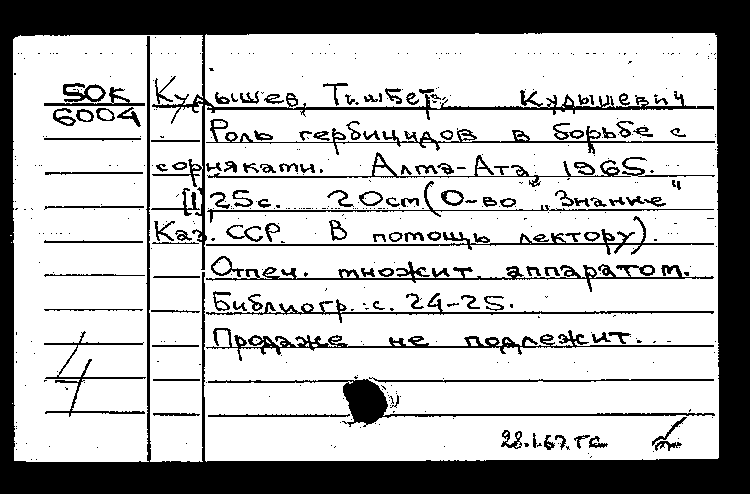 50К
6004
Кудышев, Тишбет Кудышевич
Роль гербицидов в борьбе с
сорняками. Алма-Ата, 1965.
[1], 25с. 20см (О-во „Знание"
Каз. ССР. В помощь лектору).
Отпеч. множит. аппаратом.
Библиогр.: с. 24-25.
Продаже не подлежит.
4
28.1.67.